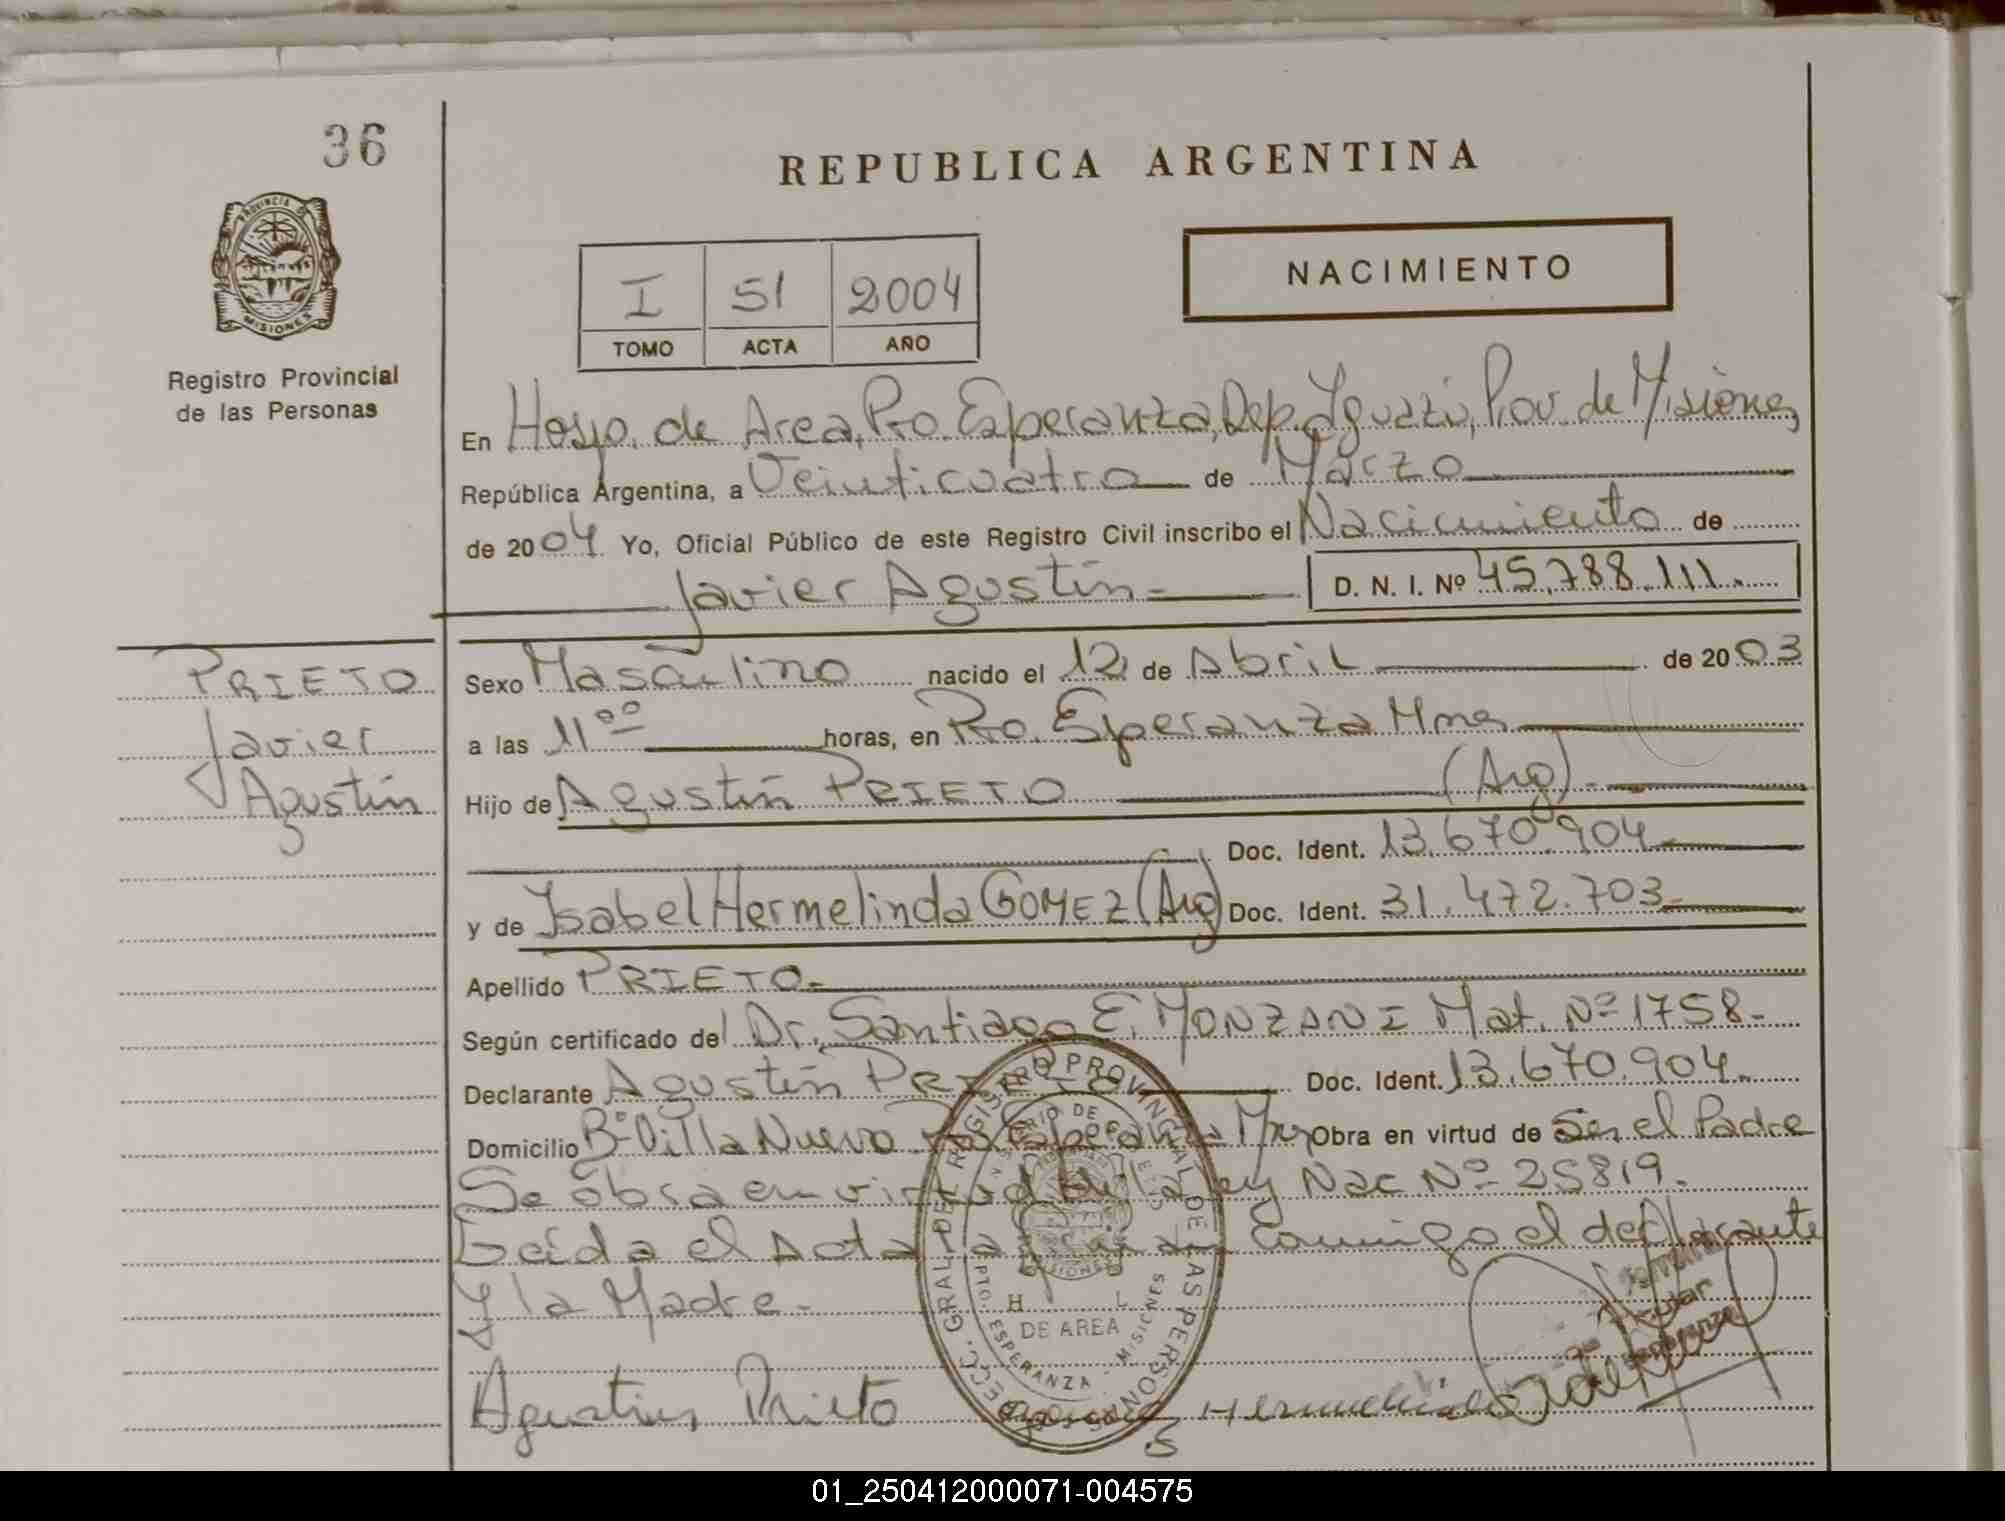 36
REPUBLICA ARGENTINA
PROVINCIA DE
MISIONES
Registro Provincial
de las Personas
NACIMIENTO
I 51 2004
TOMO ACTA AÑO
En Hosp. de Area, Pto. Esperanza, Dep. Iguazú, Prov. de Misiones
República Argentina, a Veinticuatro de Marzo
de 2004 Yo, Oficial Público de este Registro Civil inscribo el Nacimiento de
Javier Agustín
D. N. I. Nº 45.788.111.
PRIETO
Javier
Agustín
Sexo Masculino nacido el 12 de Abril de 2003
a las 11ºº horas, en Pto. Esperanza Mnes
Hijo de Agustín PRIETO (Arg).
Doc. Ident. 13.670.904
y de Isabel Hermelinda GOMEZ (Arg) Doc. Ident. 31.472.703
Apellido PRIETO.
Según certificado del Dr. Santiago E. MONZANI Mat. Nº 1758.
Declarante Agustín PRIETO Doc. Ident. 13.670.904.
Domicilio Bº Villa Nueva Pto Esperanza Obra en virtud de Ser el Padre
Se obra en virtud de la Ley Nac Nº 25819.
Leída el acta la conmigo el declarante
y la Madre.
Agustin Prieto
REGISTRO PROVINCIAL DE LAS PERSONAS
DE AREA
ESPERANZA - MISIONES
01_250412000071-004575